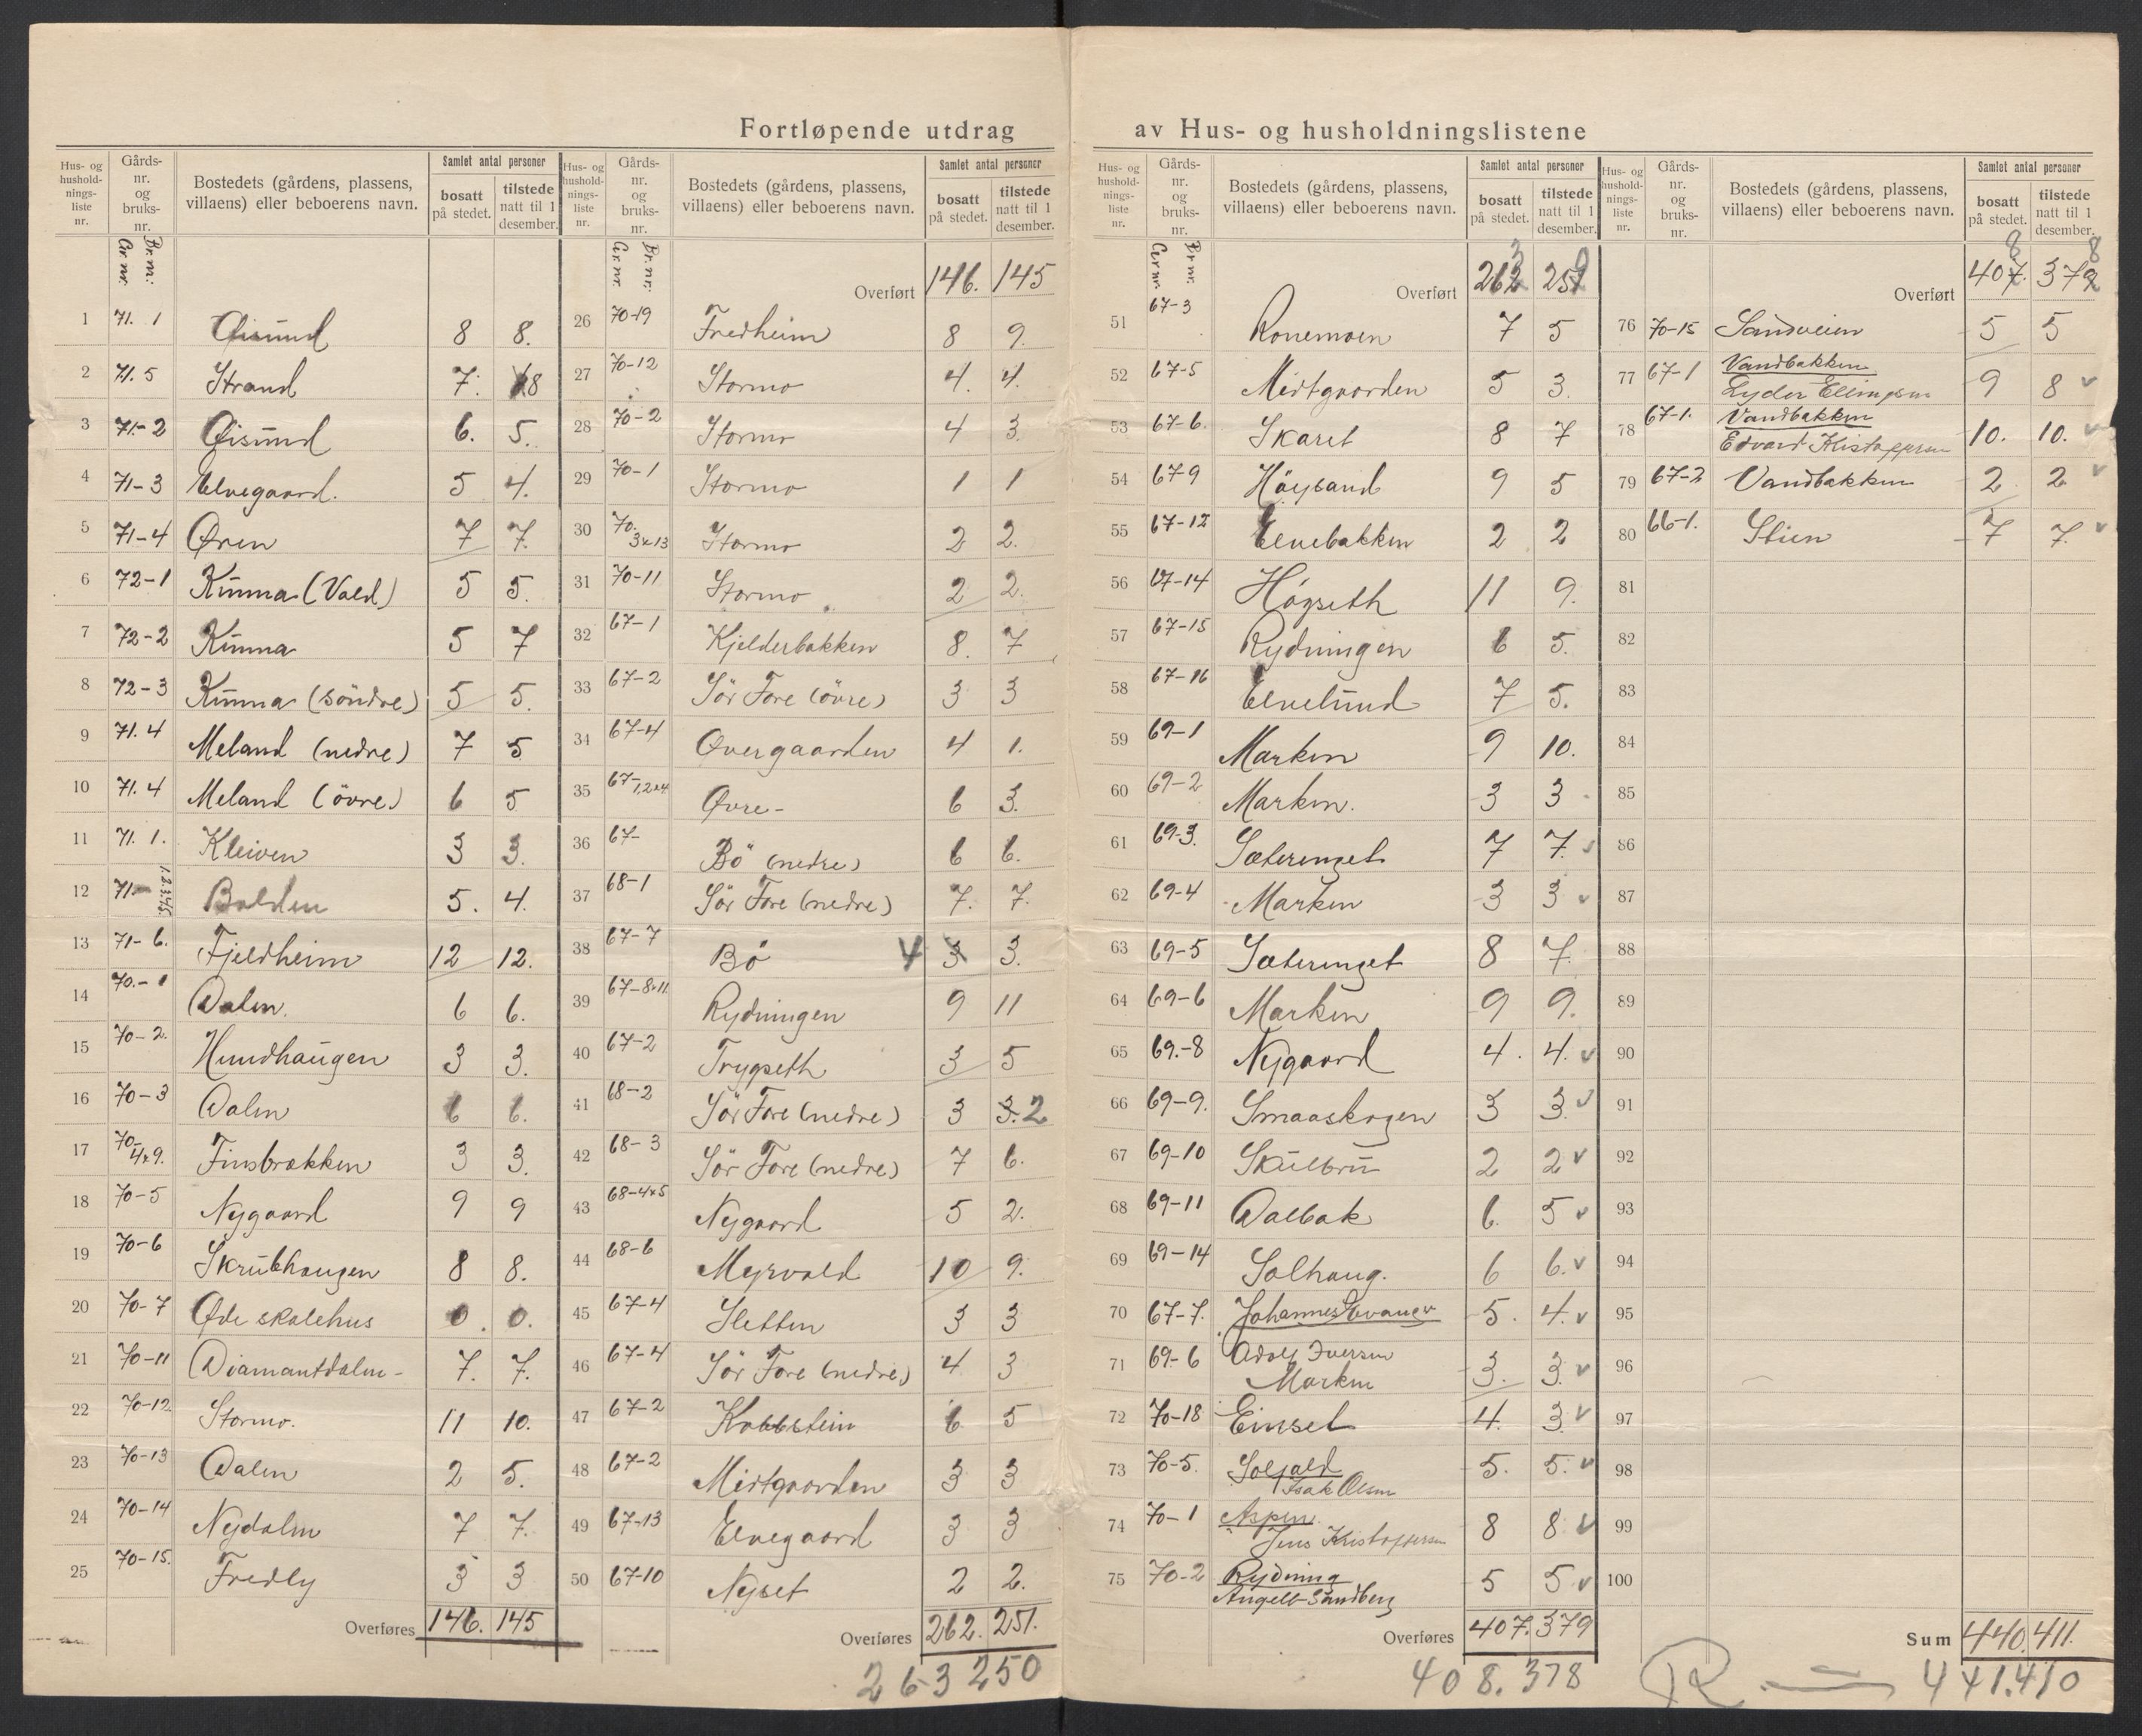 Fortløpende utdrag av Hus- og husholdningslistene
Hus- og husholdningsliste nr. | Gårds-nr. og bruks-nr. | Bostedets (gårdens, plassens, villaens) eller beboerens navn. | Samlet antal personer bosatt på stedet. | tilstede natt til 1 desember.
Gr nr. Br. nr.
1 71. 1 Øisund 8 8.
2 71. 5 Strand 7. 8
3 71-2 Øisund 6. 5.
4 71-3 Elvegaard. 5 4.
5 71-4 Øren 7 7.
6 72-1 Kunna (Vold) 5 5.
7 72-2 Kunna 5 7
8 72-3 Kunna (söndre) 5 5.
9 71. 4 Meland (nedre) 7 5
10 71. 4 Meland (övre) 6 5
11 71. 1. Kleiven 3 3.
12 71- 1.2.3.4.5. Bolden 5. 4.
13 71-6. Fjeldheim 12 12.
14 70.-1 Dalen. 6 6.
15 70-2. Hundhaugen 3 3.
16 70-3 Dalen 6 6.
17 70-4x9. Finsbrækken 3 3.
18 70-5 Nygaard 9 9
19 70-6 Skrubhaugen 8 8.
20 70-7 Øde skolehus 0. 0.
21 70-11 Diamantdalen- 7. 7.
22 70-12 Stormo. 11 10.
23 70-13 Dalen 2 5.
24 70-14 Nydalen 7 7.
25 70-15. Fredly 3 3
Overføres 146. 145
Hus- og husholdningsliste nr. | Gårds-nr. og bruks-nr. | Bostedets (gårdens, plassens, villaens) eller beboerens navn. | Samlet antal personer bosatt på stedet. | tilstede natt til 1 desember.
Gr. nr. Br. nr.
Overført 146. 145
26 70-19 Fredheim 8 9.
27 70-12 Stormo 4. 4.
28 70-2 Stormo 4 3.
29 70-1 Stormo 1 1
30 70. 3x13 Stormo 2 2.
31 70-11 Stormo 2 2.
32 67-1 Kjelderbakken 8. 7
33 67-2 Sör Fore (övre) 3 3
34 67-4 Øvergaarden 4 1.
35 67-1,2x4 Øvre- 6 3.
36 67- Bö (nedre) 6 6.
37 68-1 Sör Fore (nedre) 7. 7.
38 67-7 Bö 4 3 3.
39 67-8x11 Rydningen 9 11
40 67-2 Trygseth 3 5
41 68-2 Sör Fore (nedre) 3 3. 2
42 68-3 Sör Fore (nedre) 7 6.
43 68-4x5 Nygaard 5 2.
44 68-6 Myrvold 10 9.
45 67-4 Sletten 3 3
46 67-4 Sör Fore (nedre) 4 3
47 67-2 Kobbstein 6 5
48 67-2 Midtgaarden 3 3
49 67-13 Elvegaard 3 3
50 67-10 Nyset 2 2.
Overføres 262. 251.
263 250
Hus- og husholdningsliste nr. | Gårds-nr. og bruks-nr. | Bostedets (gårdens, plassens, villaens) eller beboerens navn. | Samlet antal personer bosatt på stedet. | tilstede natt til 1 desember.
Gr nr. Br nr.
3 0
Overført 262 251
51 67-3 Ronemoen 7 5
52 67-5 Midtgaarden 5 3.
53 67-6. Skaret 8 7
54 67-9 Höysand 9 5
55 67-12 Elvebakken 2 2
56 67-14 Högseth 11 9.
57 67-15 Rydningen 6 5.
58 67-16 Elvelund 7 5.
59 69-1 Marken 9 10.
60 69-2 Marken. 3 3
61 69-3. Sæterenget 7 7.
62 69-4 Marken 3 3
63 69-5 Sæterenget 8 7.
64 69-6 Marken 9 9.
65 69.-8 Nygaard 4. 4.
66 69-9. Smaaskogen 3 3.
67 69-10 Skulbru 2 2
68 69-11 Dalbak 6. 5
69 69-14 Solhaug. 6 6.
70 67-7. Johannes 5. 4.
71 69-6 Adolf Iversen Marken 3. 3.
72 70-18 Einset 4. 3
73 70-5. Isak Olsen 5. 5.
74 70-1 Aspen. Jens Kristoffersen 8 8
75 70-2 Rydning Angell Sandberg 5 5
Overføres 407. 379
408. 378
Hus- og husholdningsliste nr. | Gårds-nr. og bruks-nr. | Bostedets (gårdens, plassens, villaens) eller beboerens navn. | Samlet antal personer bosatt på stedet. | tilstede natt til 1 desember.
8 8
Overført 407. 379
76 70-15 Sandveien 5 5
77 67-1 Vandbakken Lyder Ellingsen 9 8
78 67-1. Vandbakken Edvard Kristoffersen 10. 10.
79 67-2 Vandbakken 2 2
80 66-1. Stien 7 7.
81
82
83
84
85
86
87
88
89
90
91
92
93
94
95
96
97
98
99
100
Sum 440. 411.
R 441. 410